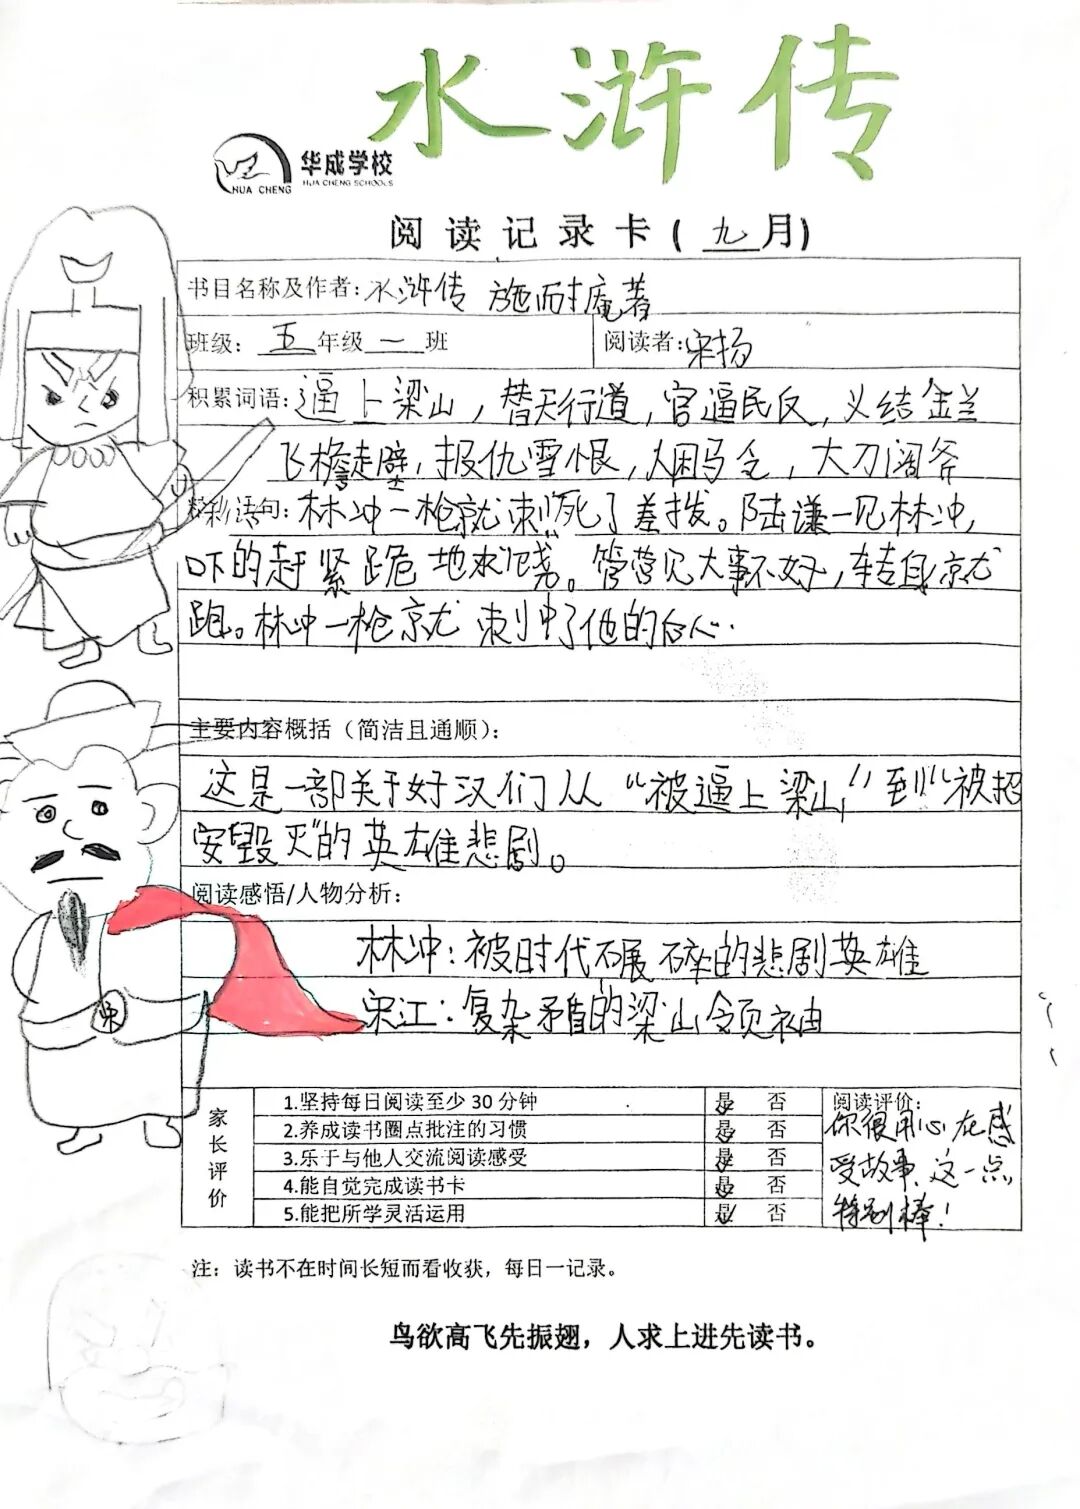 水浒传
华成学校
HUA CHENG
HUA CHENG SCHOOLS
阅读记录卡(九月)
书目名称及作者:水浒传 施耐庵著
班级:五年级一班 阅读者:宋扬
积累词语:逼上梁山，替天行道，官逼民反，义结金兰
飞檐走壁，报仇雪恨，人困马乏，大刀阔斧
精彩语句:林冲一枪就刺死了差拨。陆谦一见林冲，
吓的赶紧跪地求饶。管营见大事不好，转身就
跑。林冲一枪就刺中了他的后心.
主要内容概括（简洁且通顺）:
这是一部关于好汉们从“被逼上梁山”到“被招
安毁灭”的英雄悲剧。
阅读感悟/人物分析:
林冲:被时代碾碎的悲剧英雄
宋江:复杂矛盾的梁山领袖
宋
家长评价
1.坚持每日阅读至少30分钟 是 否
2.养成读书圈点批注的习惯 是 否
3.乐于与他人交流阅读感受 是 否
4.能自觉完成读书卡 是 否
5.能把所学灵活运用 是 否
阅读评价:
你很用心在感
受故事、这一点，
特别棒！
注：读书不在时间长短而看收获，每日一记录。
鸟欲高飞先振翅，人求上进先读书。